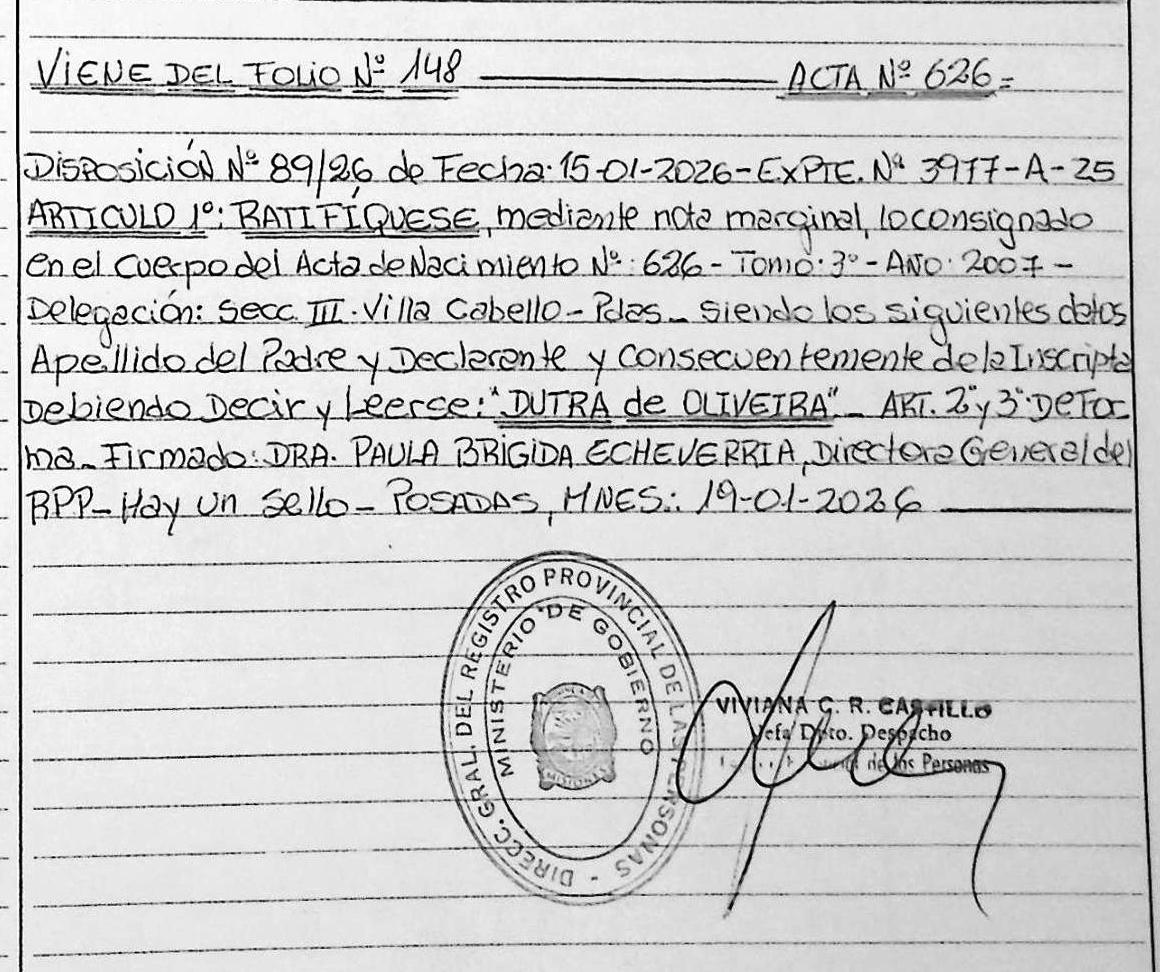 VIENE DEL FOLIO Nº 148 ACTA Nº 626=
Disposición Nº 89/26 de Fecha: 15-01-2026-EXPTE. Nº 3977-A-25
ARTICULO 1º: RATIFÍQUESE, mediante nota marginal, lo consignado
en el Cuerpo del Acta de Nacimiento Nº: 626-Tomo: 3º-Año: 2007-
Delegación: Secc. III. Villa Cabello-Pdas_ Siendo los siguientes datos
Apellido del Padre y Declarante y Consecuentemente de la Inscripta
Debiendo Decir y Leerse: "DUTRA de OLIVEIRA"_ ART. 2º y 3º De For
ma_ Firmado: DRA. PAULA BRIGIDA ECHEVERRIA, Directora General del
RPP_Hay un Sello-POSADAS, MNES.: 19-01-2026
DIRECC. GRAL. DEL REGISTRO PROVINCIAL DE LAS PERSONAS -
MINISTERIO DE GOBIERNO
MISIONES
VIVIANA C. R. CASTILLO
Jefa Dpto. Despacho
de las Personas